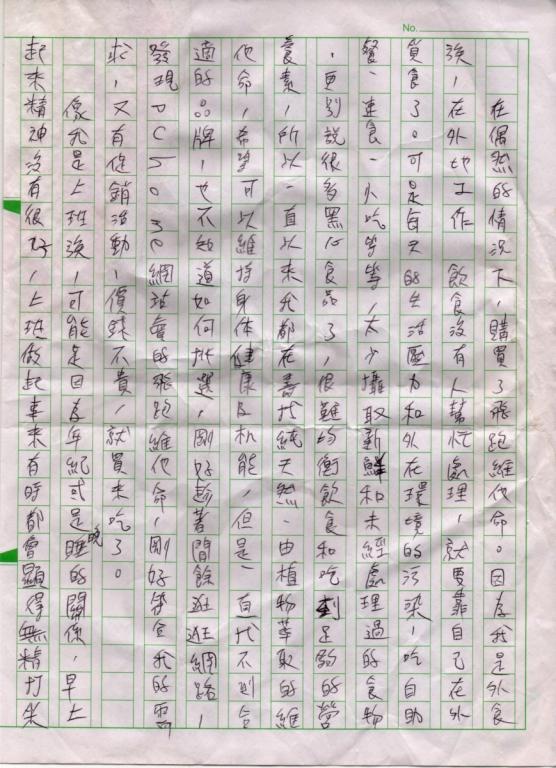 No.
在偶然的情況下，購買了飛跑維他命。因為我是外食
族，在外地工作，飲食沒有人幫忙處理，就要靠自己在外
覓食了。可是每天的生活壓力和外在環境的污染，吃自助
餐、速食、小吃等等，太少攝取新鮮和未經處理過的食物
，更別說很多黑心食品了，很難均衡飲食和吃到足夠的營
養素，所以一直以來我都在尋找純天然、由植物萃取的維
他命，希望可以維持身体健康及机能，但是一直找不到合
適的品牌，也不知道如何挑選，剛好趁著閒餘逛逛網路，
發現PCSOME網站賣的飛跑維他命，剛好符合我的需
求，又有促銷活動，價錢不貴，就買來吃了。
像我是上班族，可能是因為年紀或是晚睡的關係，早上
起來精神沒有很好，上班做起事來有時都會顯得無精打采